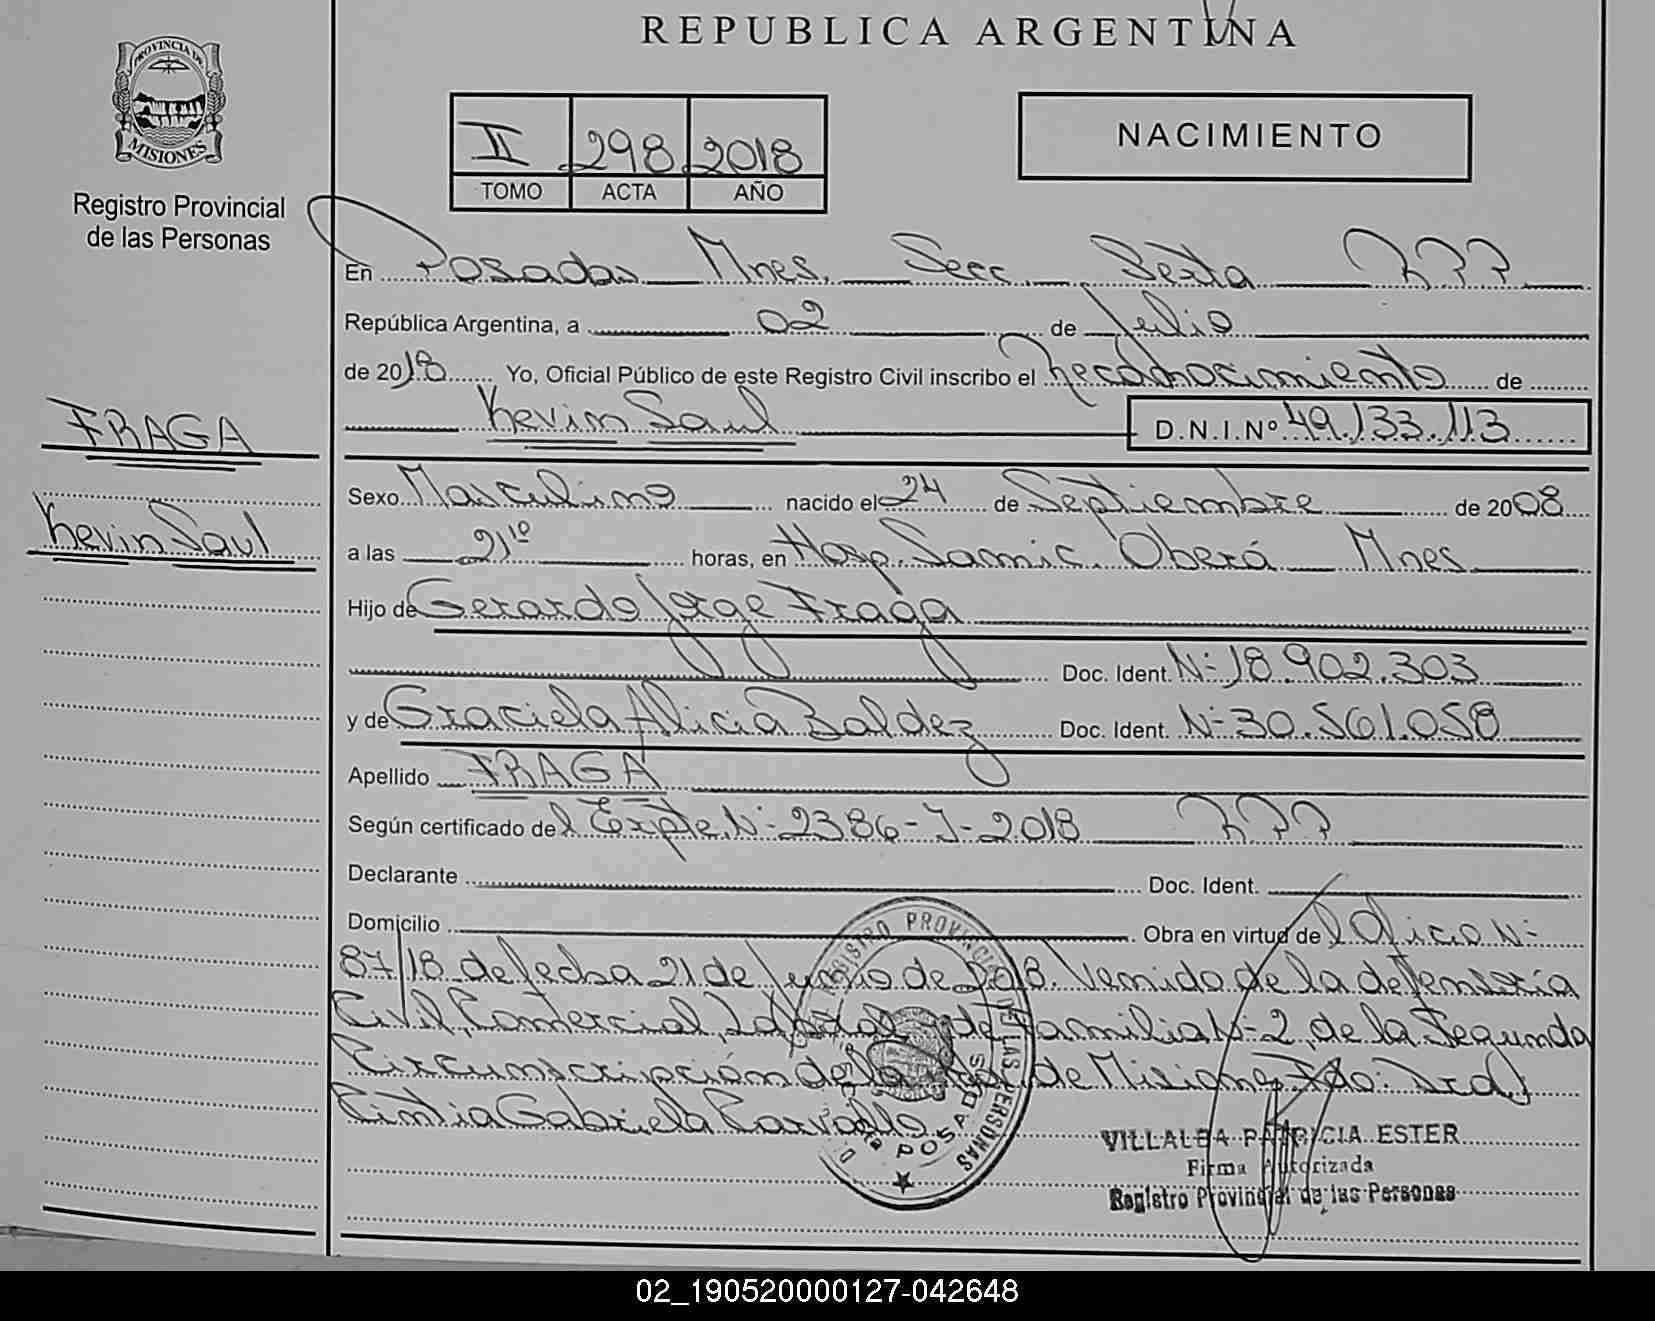 REPUBLICA ARGENTINA
PROVINCIA DE
MISIONES
Registro Provincial
de las Personas
II 298 2018
TOMO ACTA AÑO
NACIMIENTO
En Posadas Mnes. Secc. Sexta R.P.P.
República Argentina, a 02 de Julio
de 2018 Yo, Oficial Público de este Registro Civil inscribo el Reconocimiento de
Kevin Saul D.N.I.Nº 49.133.113
FRAGA
Kevin Saul
Sexo Masculino nacido el 24 de Septiembre de 2008
a las 21¹⁰ horas, en Hosp. Samic. Oberá Mnes
Hijo de Gerardo Jorge Fraga
Doc. Ident. Nº 18.902.303
y de Graciela Alicia Baldez Doc. Ident. Nº 30.561.058
Apellido FRAGA
Según certificado del Expte. Nº 2386-J-2018 R.P.P.
Declarante Doc. Ident.
Domicilio Obra en virtud del Oficio Nº
87/18 de fecha 21 de Junio de 2018. Venido de la defensoría
Civil, Comercial, Laboral y de Familia Nº 2, de la Segunda
Circunscripción de la de Misiones Fdo: Dra.
Cintia Gabriela Carvallo
REGISTRO PROVINCIAL DE LAS PERSONAS
POSADAS
VILLALBA PATRICIA ESTER
Firma Autorizada
Registro Provincial de las Personas
02_190520000127-042648